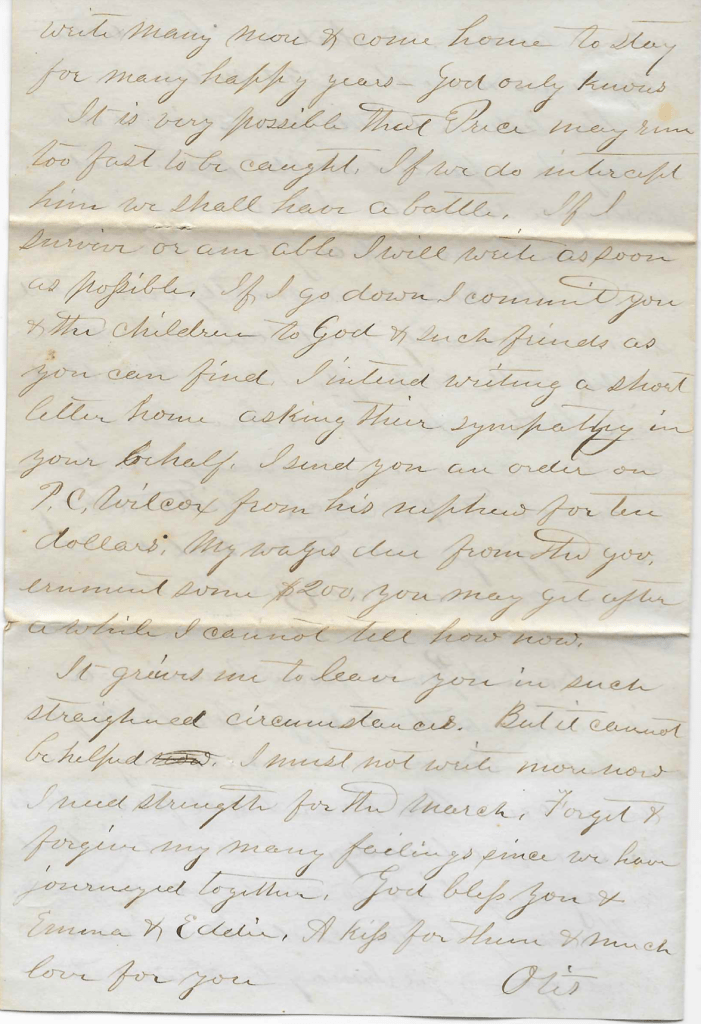 write many more & come home to stay
for many happy years - God only knows
It is very possible that Price may run
too fast to be caught. If we do intercept
him we shall have a battle. If I
survive or am able I will write as soon
as possible. If I go down I commit you
& the children to God & such friends as
you can find. I intend writing a short
letter home asking their sympathy in
your behalf. I send you an order on
P. C. Wilcox from his nephew for ten
dollars. My wages due from the gov.
ernment some $200. you may get after
a while I cannot tell how now.
It grieves me to leave you in such
straighned circumstances. But it cannot
be helped now. I must not write more now
I need strength for the march. Forget &
forgive my many failings since we have
journeyed together. God bless you &
Emma & Eddie. A kiss for them & much
love for you Otis